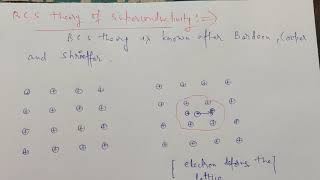 BCS theory of superconductivity :⇒
BCS theory is known after Bardeen, Cooper
and shrieffer.
[ electron deforms the
lattice